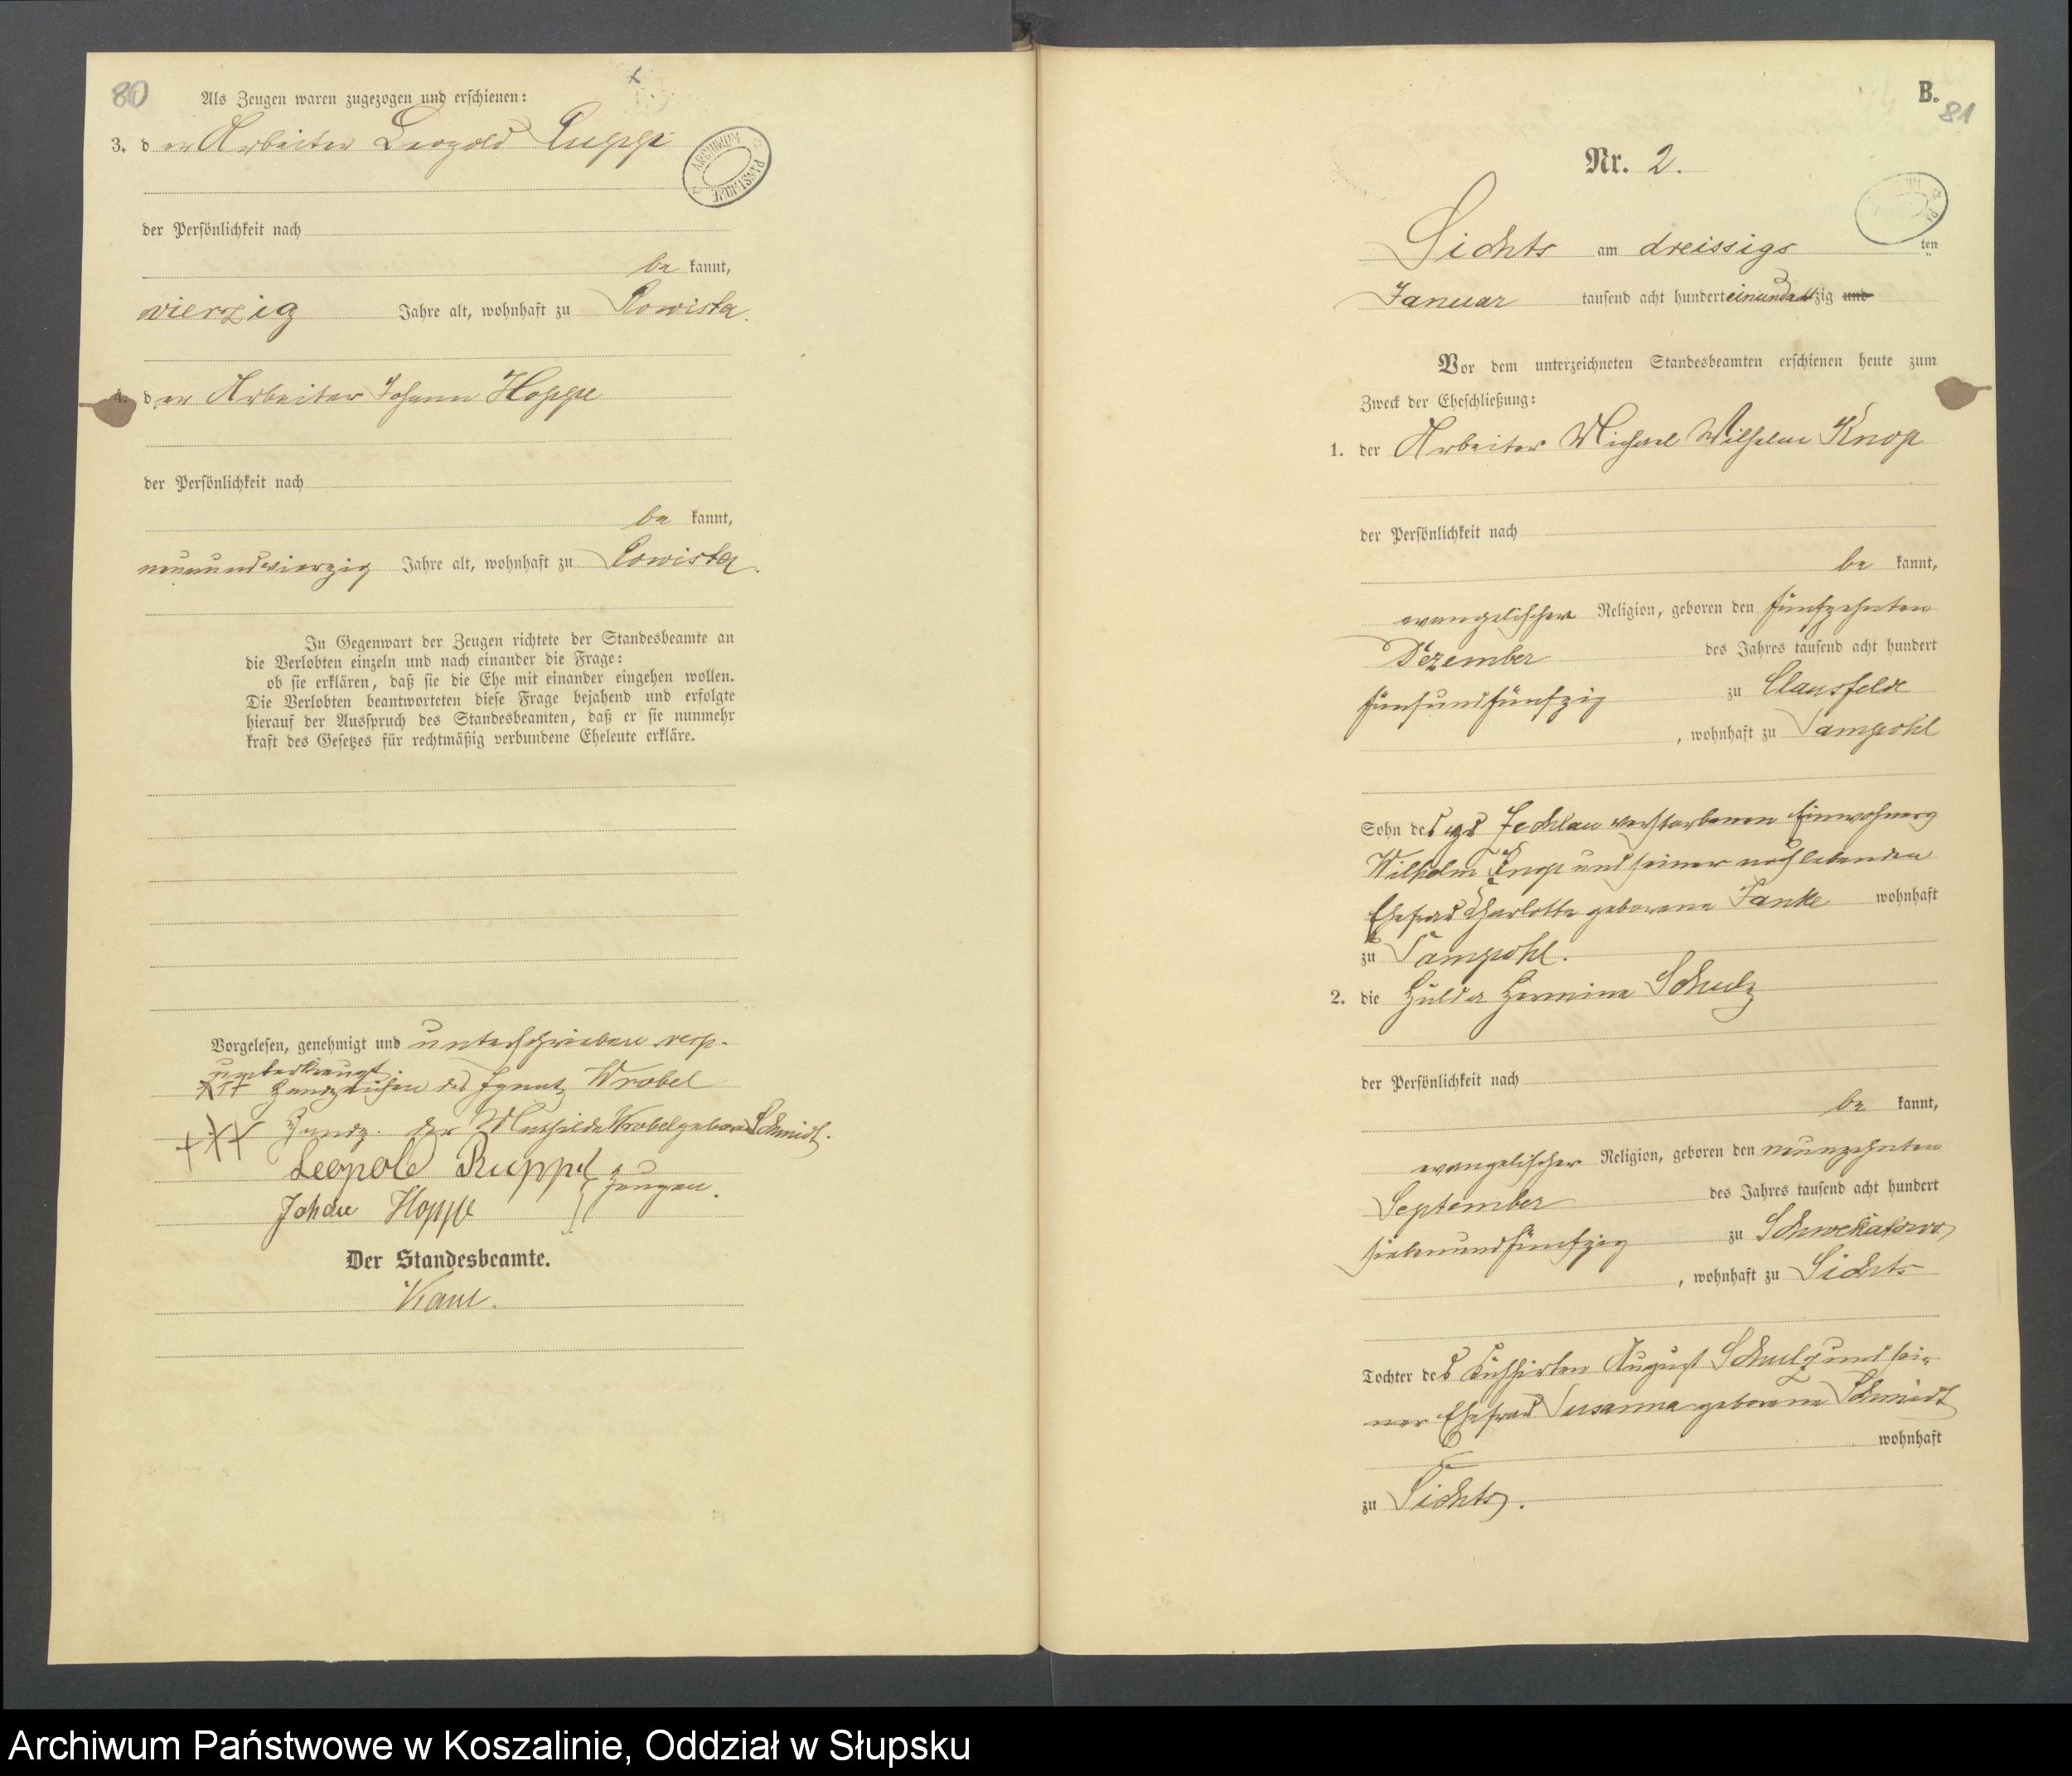 80
Als Zeugen waren zugezogen und erschienen:
3. der Arbeiter Leopold Ruppe
der Persönlichkeit nach
be kannt,
vierzig Jahre alt, wohnhaft zu
4. der Arbeiter Johann Hoppe
der Persönlichkeit nach
be kannt,
neunundvierzig Jahre alt, wohnhaft zu
In Gegenwart der Zeugen richtete der Standesbeamte an
die Verlobten einzeln und nach einander die Frage:
ob sie erklären, daß sie die Ehe mit einander eingehen wollen.
Die Verlobten beantworteten diese Frage bejahend und erfolgte
hierauf der Ausspruch des Standesbeamten, daß er sie nunmehr
kraft des Gesetzes für rechtmäßig verbundene Eheleute erkläre.
Vorgelesen, genehmigt und unterschrieben resp.
unterkreuzt.
+++ Handzeichen des Ignatz Wrobel
+++ Handz. der Mathilde Wrobel geborene Schmidt.
Leopold Ruppe
Johan Hoppe } Zeugen.
Der Standesbeamte.
ARCHIWUM PAŃSTWOWE
B.
81
Nr. 2.
Sichts am dreissigsten
Januar tausend acht hundert einundachtzig und
Vor dem unterzeichneten Standesbeamten erschienen heute zum
Zweck der Eheschließung:
1. der Arbeiter Michael Wilhelm Knop
der Persönlichkeit nach
be kannt,
evangelischer Religion, geboren den fünfzehnten
Dezember des Jahres tausend acht hundert
fünfundfünfzig zu Clausfelde
, wohnhaft zu Sampohl
Sohn des zu Zechlau verstorbenen Einwohners
Wilhelm Knop und seiner noch lebenden
Ehefrau Charlotte geborene Janke wohnhaft
zu Sampohl.
2. die Hulda Hermine Schulz
der Persönlichkeit nach
be kannt,
evangelischer Religion, geboren den neunzehnten
September des Jahres tausend acht hundert
siebenundfünfzig zu Schwekatowo
, wohnhaft zu Sichts
Tochter des Kuhhirten August Schulz und sei-
ner Ehefrau Susanna geborene Schmidt
wohnhaft
zu Sichts.
Archiwum Państwowe w Koszalinie, Oddział w Słupsku